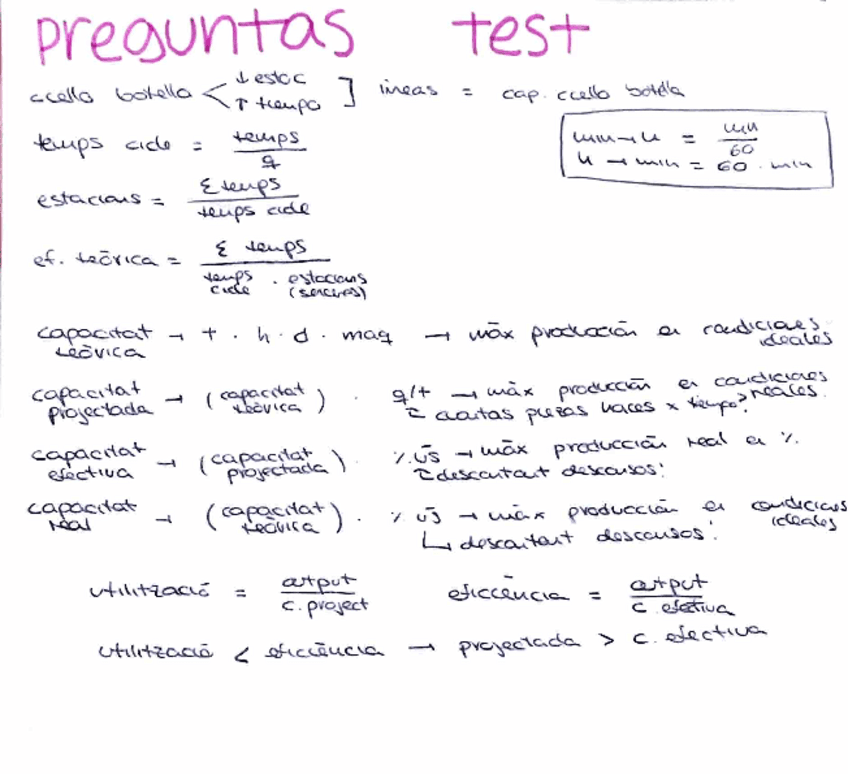 preguntas test
ccello botella < ↓ estoc ↑ tiempo ] líneas = cap. ccello botella
temps cicle = temps / q
min → h = min / 60
h → min = 60 · min
estacions = Σ temps / temps cicle
ef. teòrica = Σ temps / temps cicle · estacions (senceres)
capacitat teòrica → t · h · d · maq → màx producción en condiciones ideales
capacitat projectada → (capacitat teòrica) · q/t → màx producción en condiciones reales.
cuantas piezas haces x tiempo?
capacitat efectiva → (capacitat projectada) · % ús → màx producción real en %.
descartant descansos!
capacitat real → (capacitat teòrica) · % ús → màx producción en condiciones ideales
↳ descartant descansos!
utilització = output / c. project
eficiència = output / c. efectiva
utilització < eficiència → projectada > c. efectiva